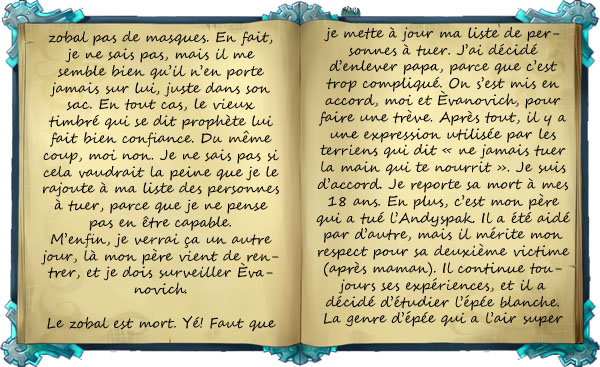 zobal pas de masques. En fait,
je ne sais pas, mais il me
semble bien qu'il n'en porte
jamais sur lui, juste dans son
sac. En tout cas, le vieux
timbré qui se dit prophète lui
fait bien confiance. Du même
coup, moi non. Je ne sais pas si
cela vaudrait la peine que je le
rajoute à ma liste des personnes
à tuer, parce que je ne pense
pas en être capable.
M'enfin, je verrai ça un autre
jour, là mon père vient de ren-
trer, et je dois surveiller Èva-
novich.
Le zobal est mort. Yé! Faut que
je mette à jour ma liste de per-
sonnes à tuer. J'ai décidé
d'enlever papa, parce que c'est
trop compliqué. On s'est mis en
accord, moi et Èvanovich, pour
faire une trêve. Après tout, il y a
une expression utilisée par les
terriens qui dit « ne jamais tuer
la main qui te nourrit ». Je suis
d'accord. Je reporte sa mort à mes
18 ans. En plus, c'est mon père
qui a tué l'Andyspak. Il a été aidé
par d'autre, mais il mérite mon
respect pour sa deuxième victime
(après maman). Il continue tou-
jours ses expériences, et il a
décidé d'étudier l'épée blanche.
La genre d'épée qui a l'air super